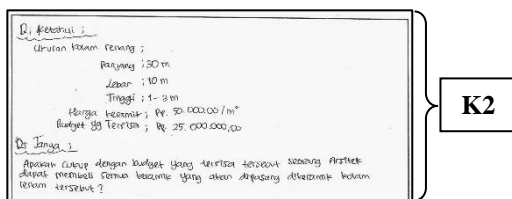 Di ketahui :
Ukuran kolam renang ;
Panjang : 30 m
Lebar : 10 m
Tinggi : 1 - 3 m
Harga keramik ; Rp. 50.000.00 / m²
Budget yg Tersisa ; Rp. 25.000.000,00
Di Tanya :
Apakah cukup dengan budget yang tersisa tersebut seorang Arsitek
dapat membeli semua keramik yang akan dipasang dikeramik kolam
renam tersebut ?
K2